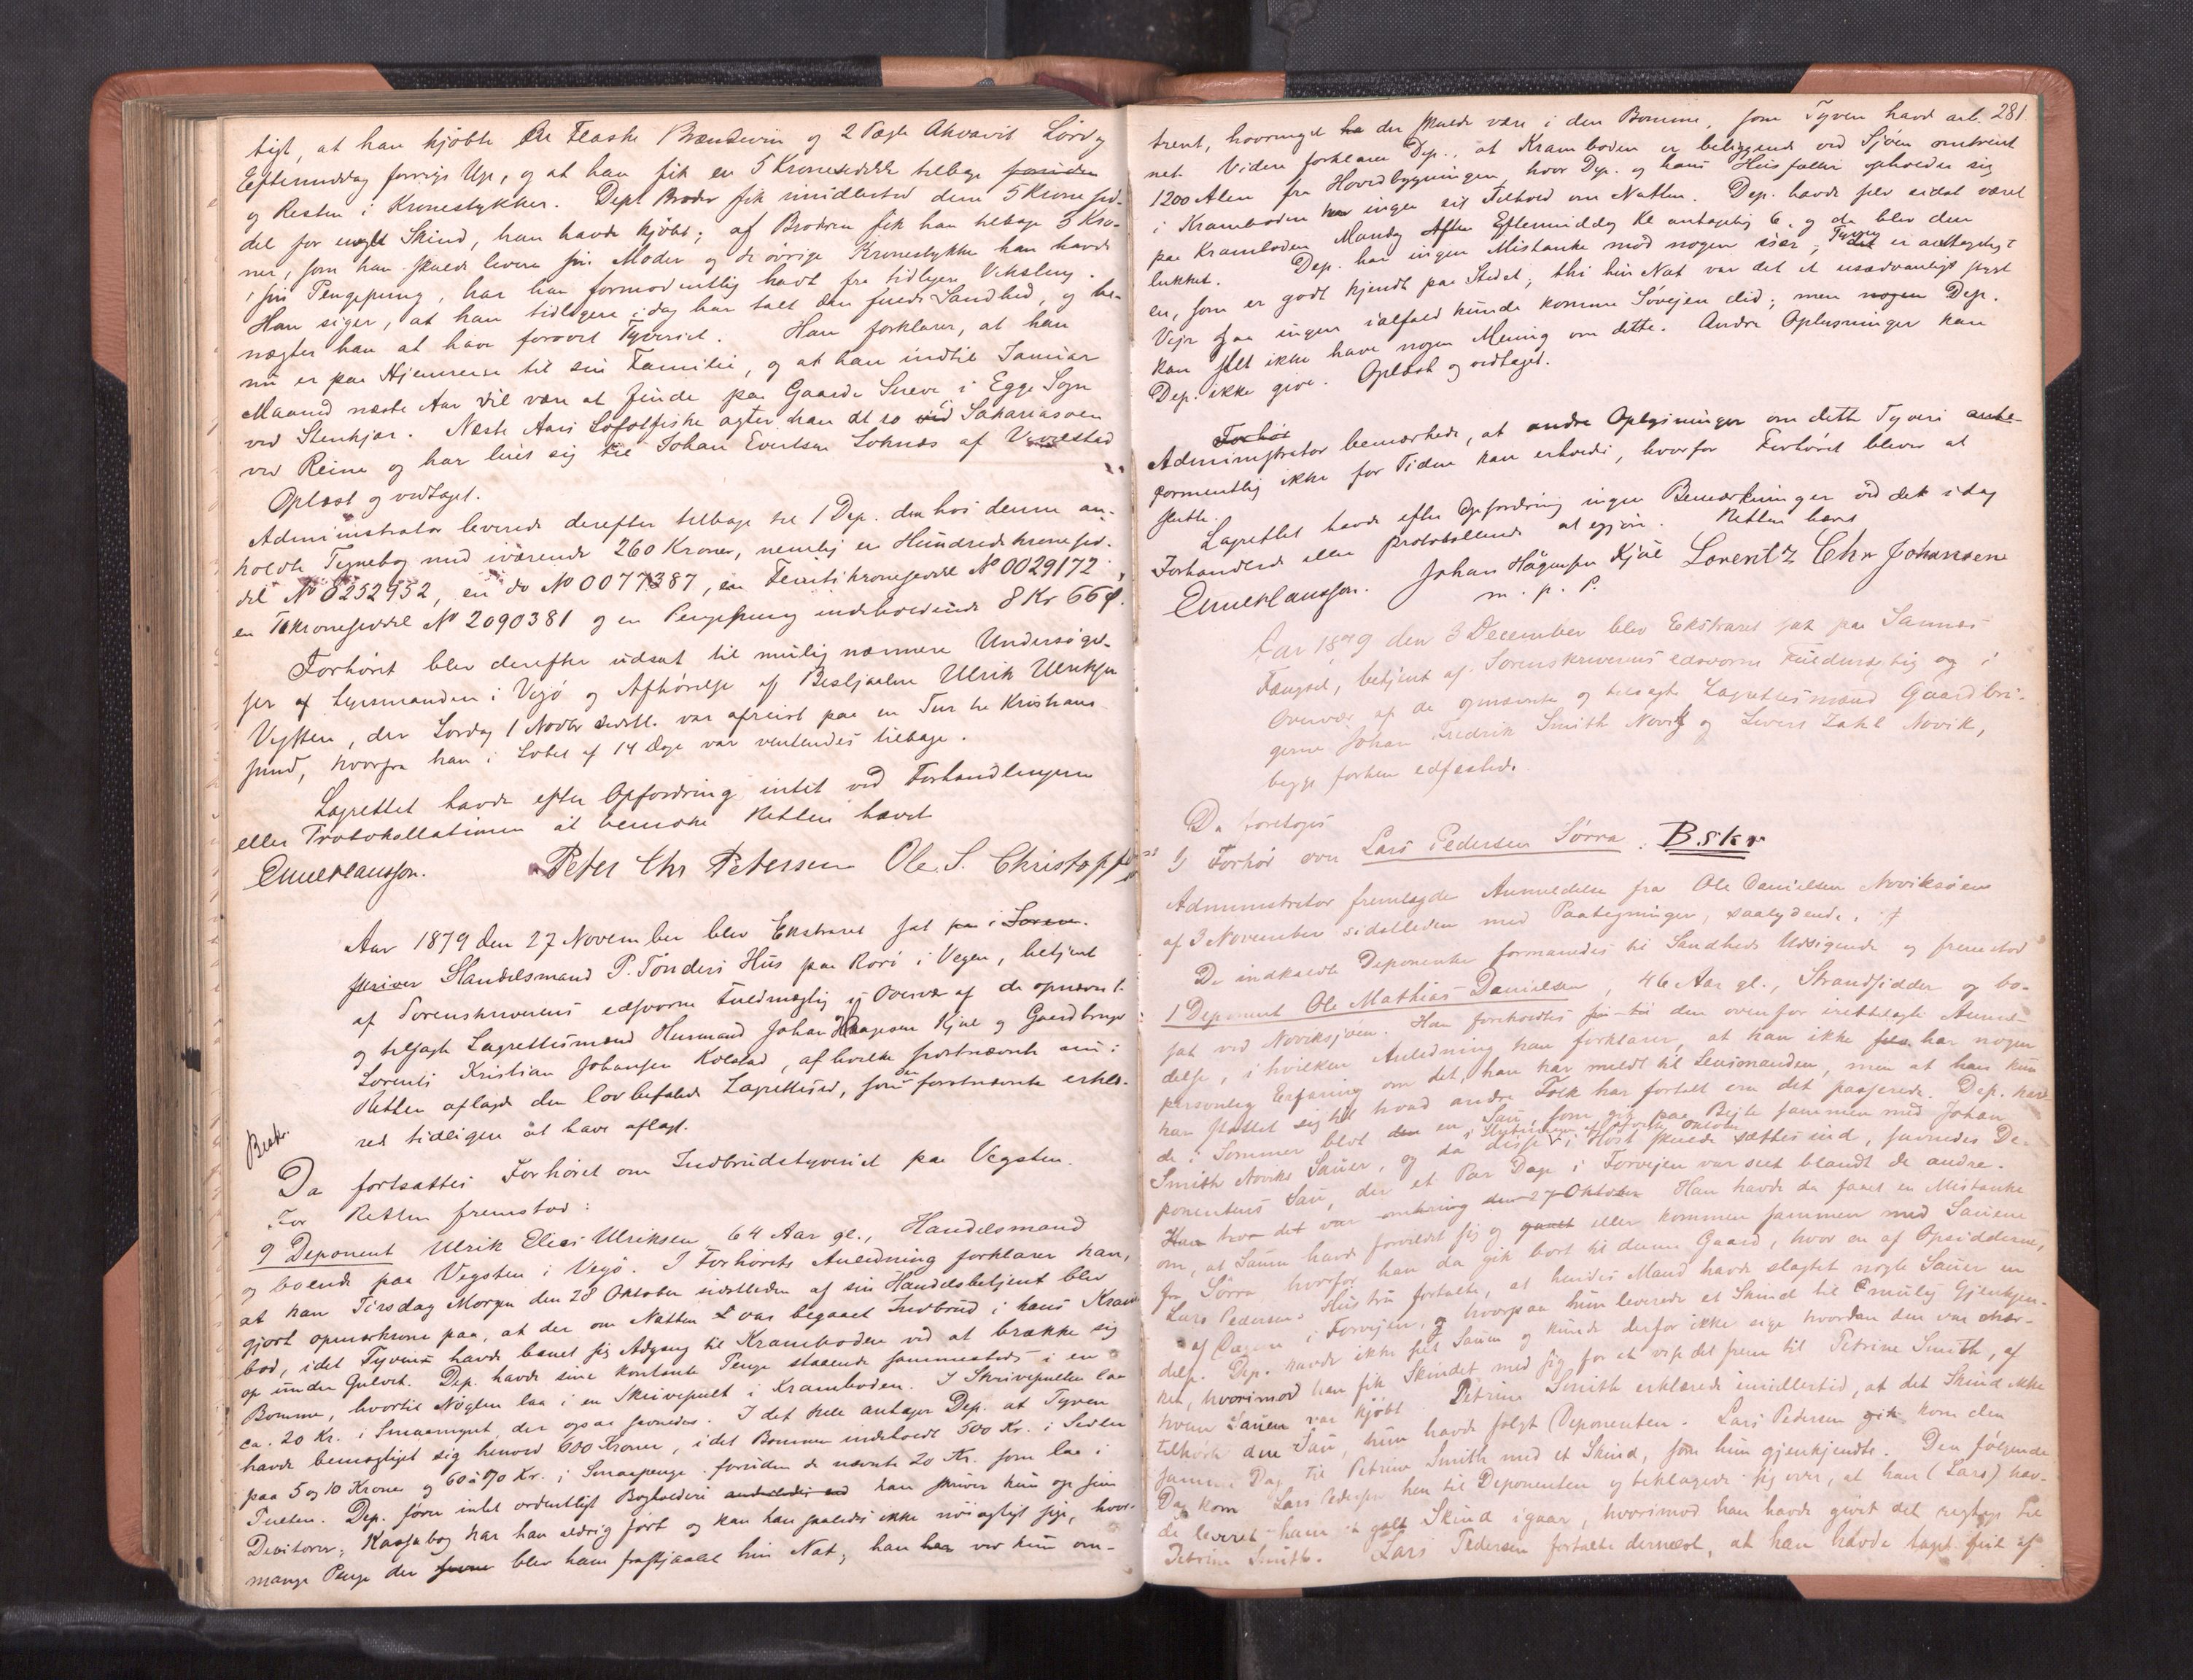 tigt, at han kjøbte En Flaske Brændevin og 2 Pægle Akvavit Lørdag
Eftermiddag forrige Uge, og at han fik en 5 Kroneseddel tilbage foruden
og Resten i Kronestykker. Depts Broder fik imidlertid denne 5 Kronesed-
del for noget Skind, han havde kjøbt; af Broderen fik han tilbage 3 Kro-
ner, som han skulde levere sin Moder og de øvrige Kronestykker han havde
i sin Pengepung, har han formodentlig havt fra tidligere Veksling.
Han siger, at han tidligere idag har talt den fulde Sandhed, og be-
nægter han at have forøvet Tyveriet. Han forklarer, at han
nu er paa Hjemreise til sin Familie, og at han indtil Januar
Maaned næste Aar vil være at finde paa Gaarden i Egge Sogn
ved Stenkjær. Næste Aars Lofotfiske agter han at ro ved Sakariasøen
ved Reine og har leiet sig til Johan Evertsen Loknæs af
Oplæst og vedtaget.
Administrator leverede derefter tilbage til 1 Dep. den hos denne an-
holdte Tegnebog med iværende 260 Kroner, nemlig en Hundredekronesed-
del No 0252952, en do No 0077387, en Femtikroneseddel No 0029172,
en Tikroneseddel No 2090381 og en Pengepung indeholdende 8 Kr 66 ø.
Forhøret blev derefter udsat til mulig nærmere Undersøgel-
ser af Lensmanden i Vegø og Afhørelse af Bestjaalne Ulrik Ulriksen
Vegsten, der Lørdag 1 Novbr sidstl. var afreist paa en Tur til Kristians-
sund, hvorfra han i Løbet af 14 Dage var ventendes tilbage.
Lagrettet havde efter Opfordring intet ved Forhandlingerne
eller Protokollationen at bemærke Retten hævet
Peter Chr Petersen Ole S. Christoffer
Aar 1879 den 27 November blev Ekstraret sat paa i Soren-
skriver Handelsmand P. Tønders Hus paa Rørø i Vegen, betjent
af Sorenskriverens edsvorne Fuldmægtig i Overvær af de opnævnte
og tilsagte Lagrettesmænd Husmand Johan Haagesen Kjul og Gaardbruger
Lorents Kristian Johansen Kolstad, af hvilke sidstnævnte nu i
Retten aflagde den lovbefalede Lagretteed, som den førstnævnte erklæ-
red tidligere at have aflagt.
Beskr.
Da fortsattes Forhøret om Indbrudstyveriet paa Vegsten.
For Retten fremstod:
9 Deponent Ulrik Elias Ulriksen 64 Aar gl., Handelsmand
og boende paa Vegsten i Vegø. I Forhørets Anledning forklarer han,
at han Tirsdag Morgen den 28 Oktober sidstleden af sin Handelsbetjent blev
gjort opmærksom paa, at der om Natten var begaaet Indbrud i hans Kram-
bod, idet Tyven havde banet sig Adgang til Kramboden ved at brække sig
op under Gulvet. Dep. havde sine kontante Penge staaende sammesteds i en
Bomme, hvortil Nøglen laa i en Skrivepult i Kramboden. I Skrivepulten laa
ca. 20 Kr. i Smaamynt, der ogsaa savnedes. I det hele antager Dep. at Tyven
havde bemægtiget sig henved 600 Kroner, idet Bommen indeholdt 500 Kr. i Sedler
paa 5 og 10 Kroner og 60 à 70 Kr. i Smaapenge foruden de nævnte 20 Kr. som laa i
Pulten. Dep. fører intet ordentligt Bogholderi anderledes end han skriver kun op sine
Debitorer; Kassabog har han aldrig ført og kan han saaledes ikke nøiagtigt sige, hvor-
mange Penge der blev ham frastjaalet hin Nat; han ved kun om-
281
trent, hvormeget der skulde være i den Bomme, som Tyven havde aab-
net. Videre forklarer Dep., at Kramboden er beliggende ved Sjøen omtrent
1200 Alen fra Hovedbygningen, hvor Dep. og hans Husfolk opholder sig
i Kramboden har ingen sit Tilhold om Natten. Dep. havde selv sidst været
paa Kramboden Mandag Aften Eftermiddag Kl antagelig 6, og da blev den
lukket. Dep. har ingen Mistanke mod nogen især; Tyven er antageligt
en, som er godt kjendt paa Stedet; thi hin Nat var det et usædvanligt stygt
Vejr saa ingen ialfald kunde komme Søvejen did; men nogen Dep.
kan selv ikke have nogen Mening om dette. Andre Oplysninger kan
Dep. ikke give. Oplæst og vedtaget.
Forhør
Administrator bemærkede, at andre Oplysninger om dette Tyveri ante-
formentlig ikke for Tiden kan erholdes, hvorfor Forhøret bliver at
slutte.
Lagrettet havde efter Opfordring ingen Bemærkninger ved det idag
Forhandlede eller Protokollerede at gjøre. Retten hævet
Johan Hågensen Kjul Lorentz Chr Johansen
m. p. P.
Aar 1879 den 3 December blev Ekstraret sat paa Sannæs
Fængsel, betjent af Sorenskriverens edsvorne Fuldmægtig og i
Overvær af de opnævnte og tilsagte Lagrettesmænd Gaardbru-
gerne Johan Fredrik Smith Novik og Sivert Zahl Novik,
begge forhen edfæstede.
Da foretoges
1) Forhør over Lars Pedersen Sørra. Bskr
Administrator fremlagde Anmeldelse fra Ole Danielsen Noviksøen
af 3 November sidstleden med Paategninger, saalydende:
De indkaldte Deponenter formanedes til Sandheds Udsigende og fremstod
1 Deponent Ole Mathias Danielsen, 46 Aar gl., Strandsidder og bo-
sat ved Noviksjøen. Han foreholdtes den ovenfor irettelagte Anmel-
delse, i hvilken Anledning han forklarer, at han ikke selv har nogen
personlig Erfaring om det, han har meldt til Lensmanden, men at han kun
har støttet sig til hvad andre Folk har fortalt om det passerede. Dep. hav-
de i Sommer blot den en Sau, som gik paa Bejte sammen med Johan
i Slutningen af forrige Oktober
Smith Noviks Sauer, og da disse i Høst skulde sættes ind, savnedes De-
ponentens Sau, der et Par Dage i Forvejen var seet blandt de andre.
Han tror det var omkring den 27 Oktober Han havde da faaet en Mistanke
om, at Sauen havde forvildet sig og eller kommen sammen med Sauene
fra Sørra, hvorfor han da gik bort til denne Gaard, hvor en af Opsidderne,
Lars Pedersens Hustru fortalte, at hendes Mand havde slagtet nogle Sauer en
af Dagene i Forvejen, og hvorpaa hun leverede et Skind til mulig Gjenkjen-
delse. Dep. havde ikke set Sauen og kunde derfor ikke sige hvordan den var mær-
ket, hvorimod han fik Skindet med sig for at vise det frem til Petrine Smith, af
hvem Sauen var kjøbt. Petrine Smith erklærede imidlertid, at det Skind ikke
tilhørte den Sau, hun havde solgt Deponenten. Lars Pedersen gik kom den
samme Dag til Petrine Smith med et Skind, som hun gjenkjendte. Den følgende
Dag kom Lars Pedersen hen til Deponenten og beklagede sig over, at han (Lars) hav-
de leveret ham et galt Skind igaar, hvorimod han havde givet det rigtige til
Petrine Smith. Lars Pedersen fortalte dernæst, at han havde taget feil af